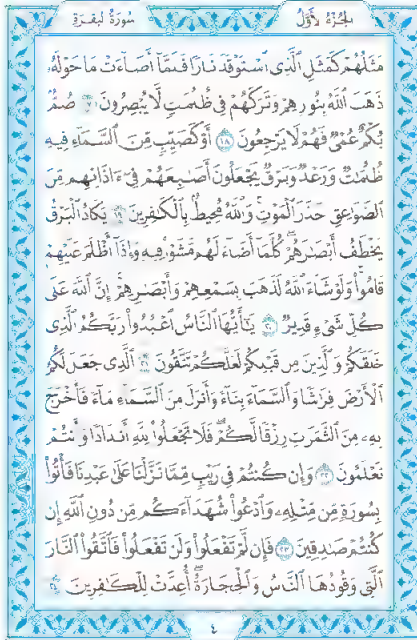 الجزء الأول سورة البقرة
مَثَلُهُمْ كَمَثَلِ الَّذِي اسْتَوْقَدَ نَارًا فَلَمَّا أَضَاءَتْ مَا حَوْلَهُ
ذَهَبَ اللَّهُ بِنُورِهِمْ وَتَرَكَهُمْ فِي ظُلُمَٰتٍ لَّا يُبْصِرُونَ ١٧ صُمٌّ
بُكْمٌ عُمْيٌ فَهُمْ لَا يَرْجِعُونَ ١٨ أَوْ كَصَيِّبٍ مِّنَ السَّمَاءِ فِيهِ
ظُلُمَٰتٌ وَرَعْدٌ وَبَرْقٌ يَجْعَلُونَ أَصَٰبِعَهُمْ فِي ءَاذَانِهِم مِّنَ
الصَّوَٰعِقِ حَذَرَ الْمَوْتِ وَاللَّهُ مُحِيطٌ بِالْكَٰفِرِينَ ١٩ يَكَادُ الْبَرْقُ
يَخْطَفُ أَبْصَٰرَهُمْ كُلَّمَا أَضَاءَ لَهُم مَّشَوْا فِيهِ وَإِذَا أَظْلَمَ عَلَيْهِمْ
قَامُوا وَلَوْ شَاءَ اللَّهُ لَذَهَبَ بِسَمْعِهِمْ وَأَبْصَٰرِهِمْ إِنَّ اللَّهَ عَلَىٰ
كُلِّ شَيْءٍ قَدِيرٌ ٢٠ يَٰأَيُّهَا النَّاسُ اعْبُدُوا رَبَّكُمُ الَّذِي
خَلَقَكُمْ وَالَّذِينَ مِن قَبْلِكُمْ لَعَلَّكُمْ تَتَّقُونَ ٢١ الَّذِي جَعَلَ لَكُمُ
الْأَرْضَ فِرَٰشًا وَالسَّمَاءَ بِنَاءً وَأَنزَلَ مِنَ السَّمَاءِ مَاءً فَأَخْرَجَ
بِهِ مِنَ الثَّمَرَٰتِ رِزْقًا لَّكُمْ فَلَا تَجْعَلُوا لِلَّهِ أَندَادًا وَأَنتُمْ
تَعْلَمُونَ ٢٢ وَإِن كُنتُمْ فِي رَيْبٍ مِّمَّا نَزَّلْنَا عَلَىٰ عَبْدِنَا فَأْتُوا
بِسُورَةٍ مِّن مِّثْلِهِ وَادْعُوا شُهَدَاءَكُم مِّن دُونِ اللَّهِ إِن
كُنتُمْ صَٰدِقِينَ ٢٣ فَإِن لَّمْ تَفْعَلُوا وَلَن تَفْعَلُوا فَاتَّقُوا النَّارَ
الَّتِي وَقُودُهَا النَّاسُ وَالْحِجَارَةُ أُعِدَّتْ لِلْكَٰفِرِينَ ٢٤
٤